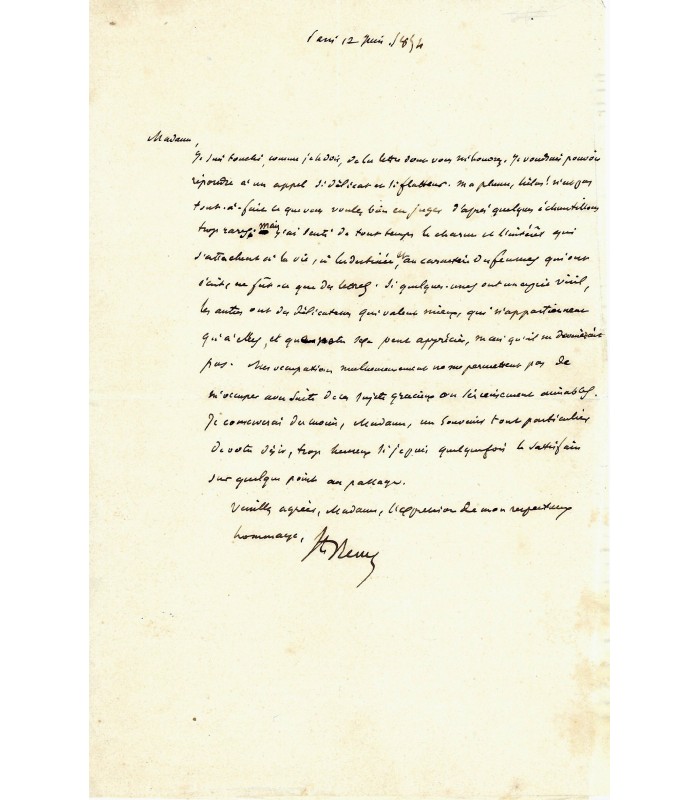 Paris 12 Juin 1854
Madame,
Je suis touché, comme je le dois, de la lettre dont vous m'honorez. Je voudrais pouvoir
répondre à un appel si délicat et si flatteur. Ma plume, hélas! n'est pas
tout-à-fait ce que vous voulez bien en juger d'après quelques échantillons
trop rares; mais j'ai senti de tout temps le charme et l'intérêt qui
s'attachent à la vie, à la destinée, au caractère des femmes qui ont
écrit, ne fût-ce que des lettres. Si quelques-unes ont un esprit viril,
les autres ont des délicatesses qui valent mieux, qui n'appartiennent
qu'à elles, et que notre sexe peut apprécier, mais qu'il ne devinerait
pas. Mes occupations malheureusement ne me permettent pas de
m'occuper avec suite de ces sujets gracieux ou sérieusement aimables.
Je conserverai du moins, Madame, un souvenir tout particulier
de votre désir, trop heureux si je puis quelquefois le satisfaire
sur quelque point au passage.
Veuillez agréer, Madame, l'expression de mon respectueux
hommage,
Ste Beuve